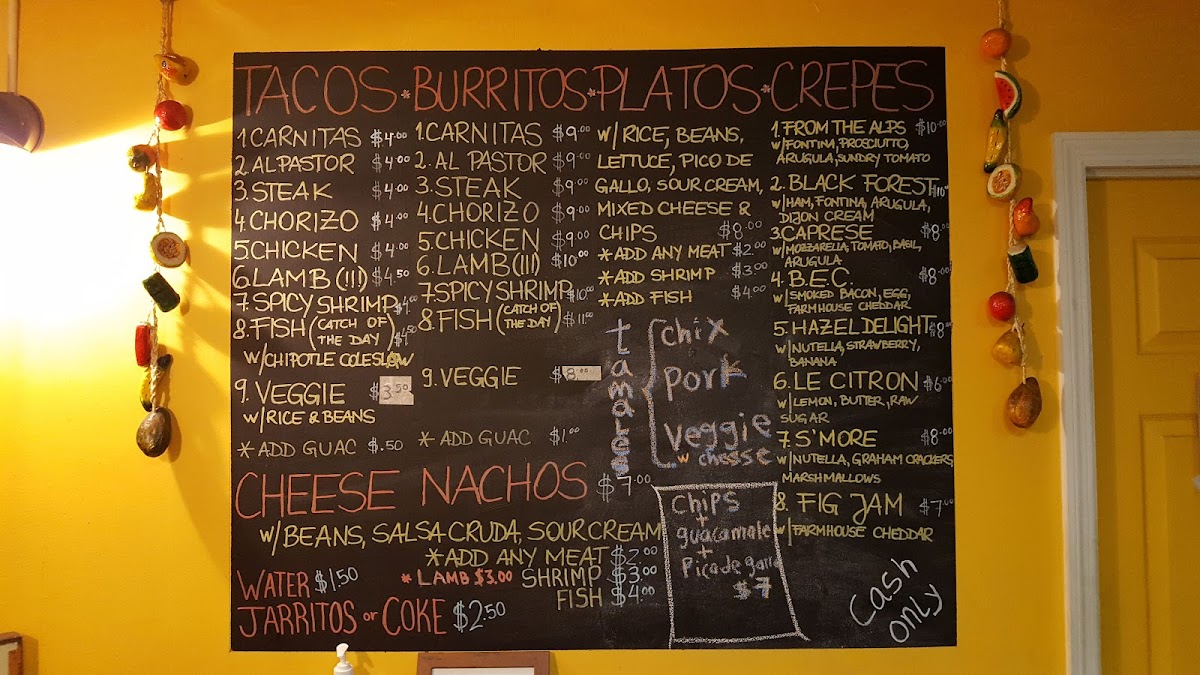 TACOS * BURRITOS * PLATOS * CREPES
1. CARNITAS $4.00
2. AL PASTOR $4.00
3. STEAK $4.00
4. CHORIZO $4.00
5. CHICKEN $4.00
6. LAMB (!!!) $4.50
7. SPICY SHRIMP $4.00
8. FISH (CATCH OF THE DAY) $4.50
W/CHIPOTLE COLESLOW
9. VEGGIE $3.50
W/RICE & BEANS
* ADD GUAC $.50
1. CARNITAS $9.00
2. AL PASTOR $9.00
3. STEAK $9.00
4. CHORIZO $9.00
5. CHICKEN $9.00
6. LAMB (!!!) $10.00
7. SPICY SHRIMP $10.00
8. FISH (CATCH OF THE DAY) $11.00
9. VEGGIE $8.00
* ADD GUAC $1.00
W/ RICE, BEANS,
LETTUCE, PICO DE
GALLO, SOUR CREAM,
MIXED CHEESE &
CHIPS $8.00
* ADD ANY MEAT $2.00
* ADD SHRIMP $3.00
* ADD FISH $4.00
tamales
chix
pork
veggie
w cheese
1. FROM THE ALPS $10.00
W/FONTINA, PROSCIUTTO,
ARUGULA, SUNDRY TOMATO
2. BLACK FOREST $10.00
W/HAM, FONTINA, ARUGULA,
DIJON CREAM
3. CAPRESE $8.00
W/MOZZARELLA, TOMATO, BASIL,
ARUGULA
4. B.E.C. $8.00
W/SMOKED BACON, EGG,
FARMHOUSE CHEDDAR
5. HAZEL DELIGHT $8.00
W/NUTELLA, STRAWBERRY,
BANANA
6. LE CITRON $6.00
W/LEMON, BUTTER, RAW
SUGAR
7. S'MORE $8.00
W/NUTELLA, GRAHAM CRACKERS,
MARSHMALLOWS
8. FIG JAM $7.00
W/FARMHOUSE CHEDDAR
CHEESE NACHOS $7.00
W/BEANS, SALSA CRUDA, SOUR CREAM
* ADD ANY MEAT $2.00
* LAMB $3.00 SHRIMP $3.00
FISH $4.00
WATER $1.50
JARRITOS or COKE $2.50
Chips
+
guacamole
+
Pico de gallo
$7
Cash
only